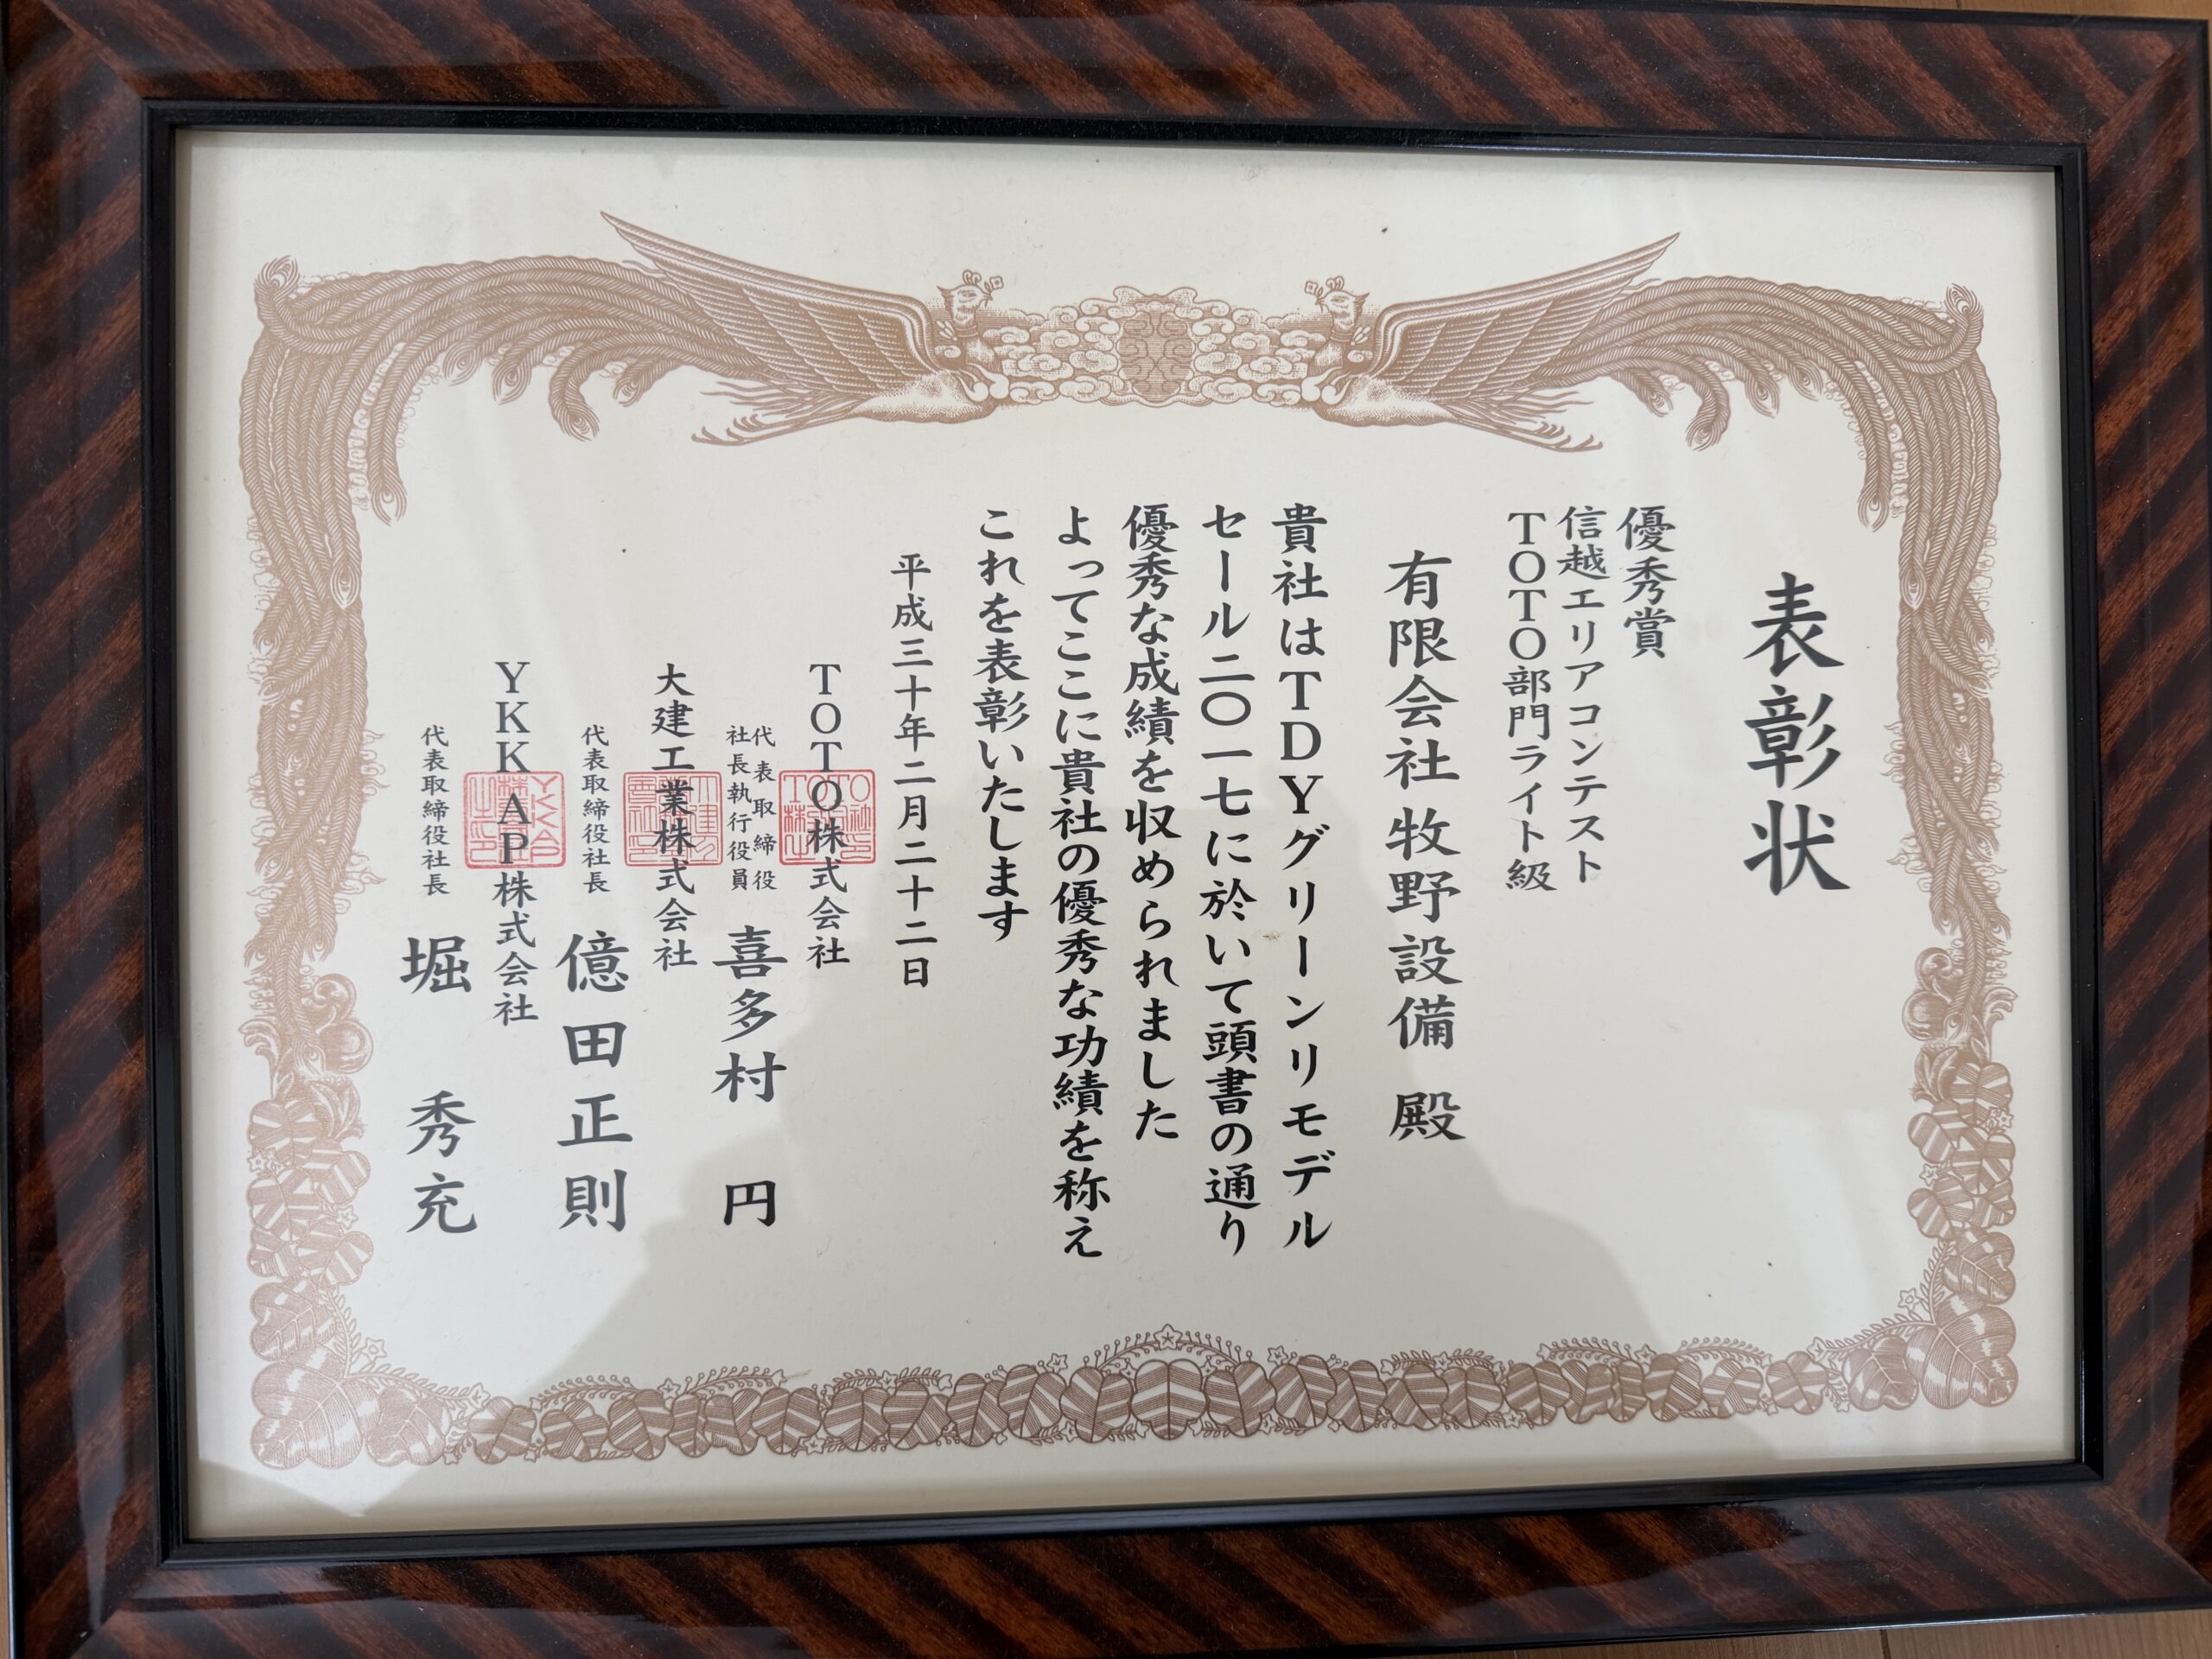 表彰状
優秀賞
信越エリアコンテスト
TOTO部門ライト級
有限会社 牧野設備 殿
貴社はTDYグリーンリモデル
セール二〇一七に於いて頭書の通り
優秀な成績を収められました
よってここに貴社の優秀な功績を称え
これを表彰いたします
平成三十年二月二十二日
TOTO株式会社
代表取締役
社長執行役員
喜多村 円
大建工業株式会社
代表取締役社長
億田正則
YKK AP株式会社
代表取締役社長
堀 秀充